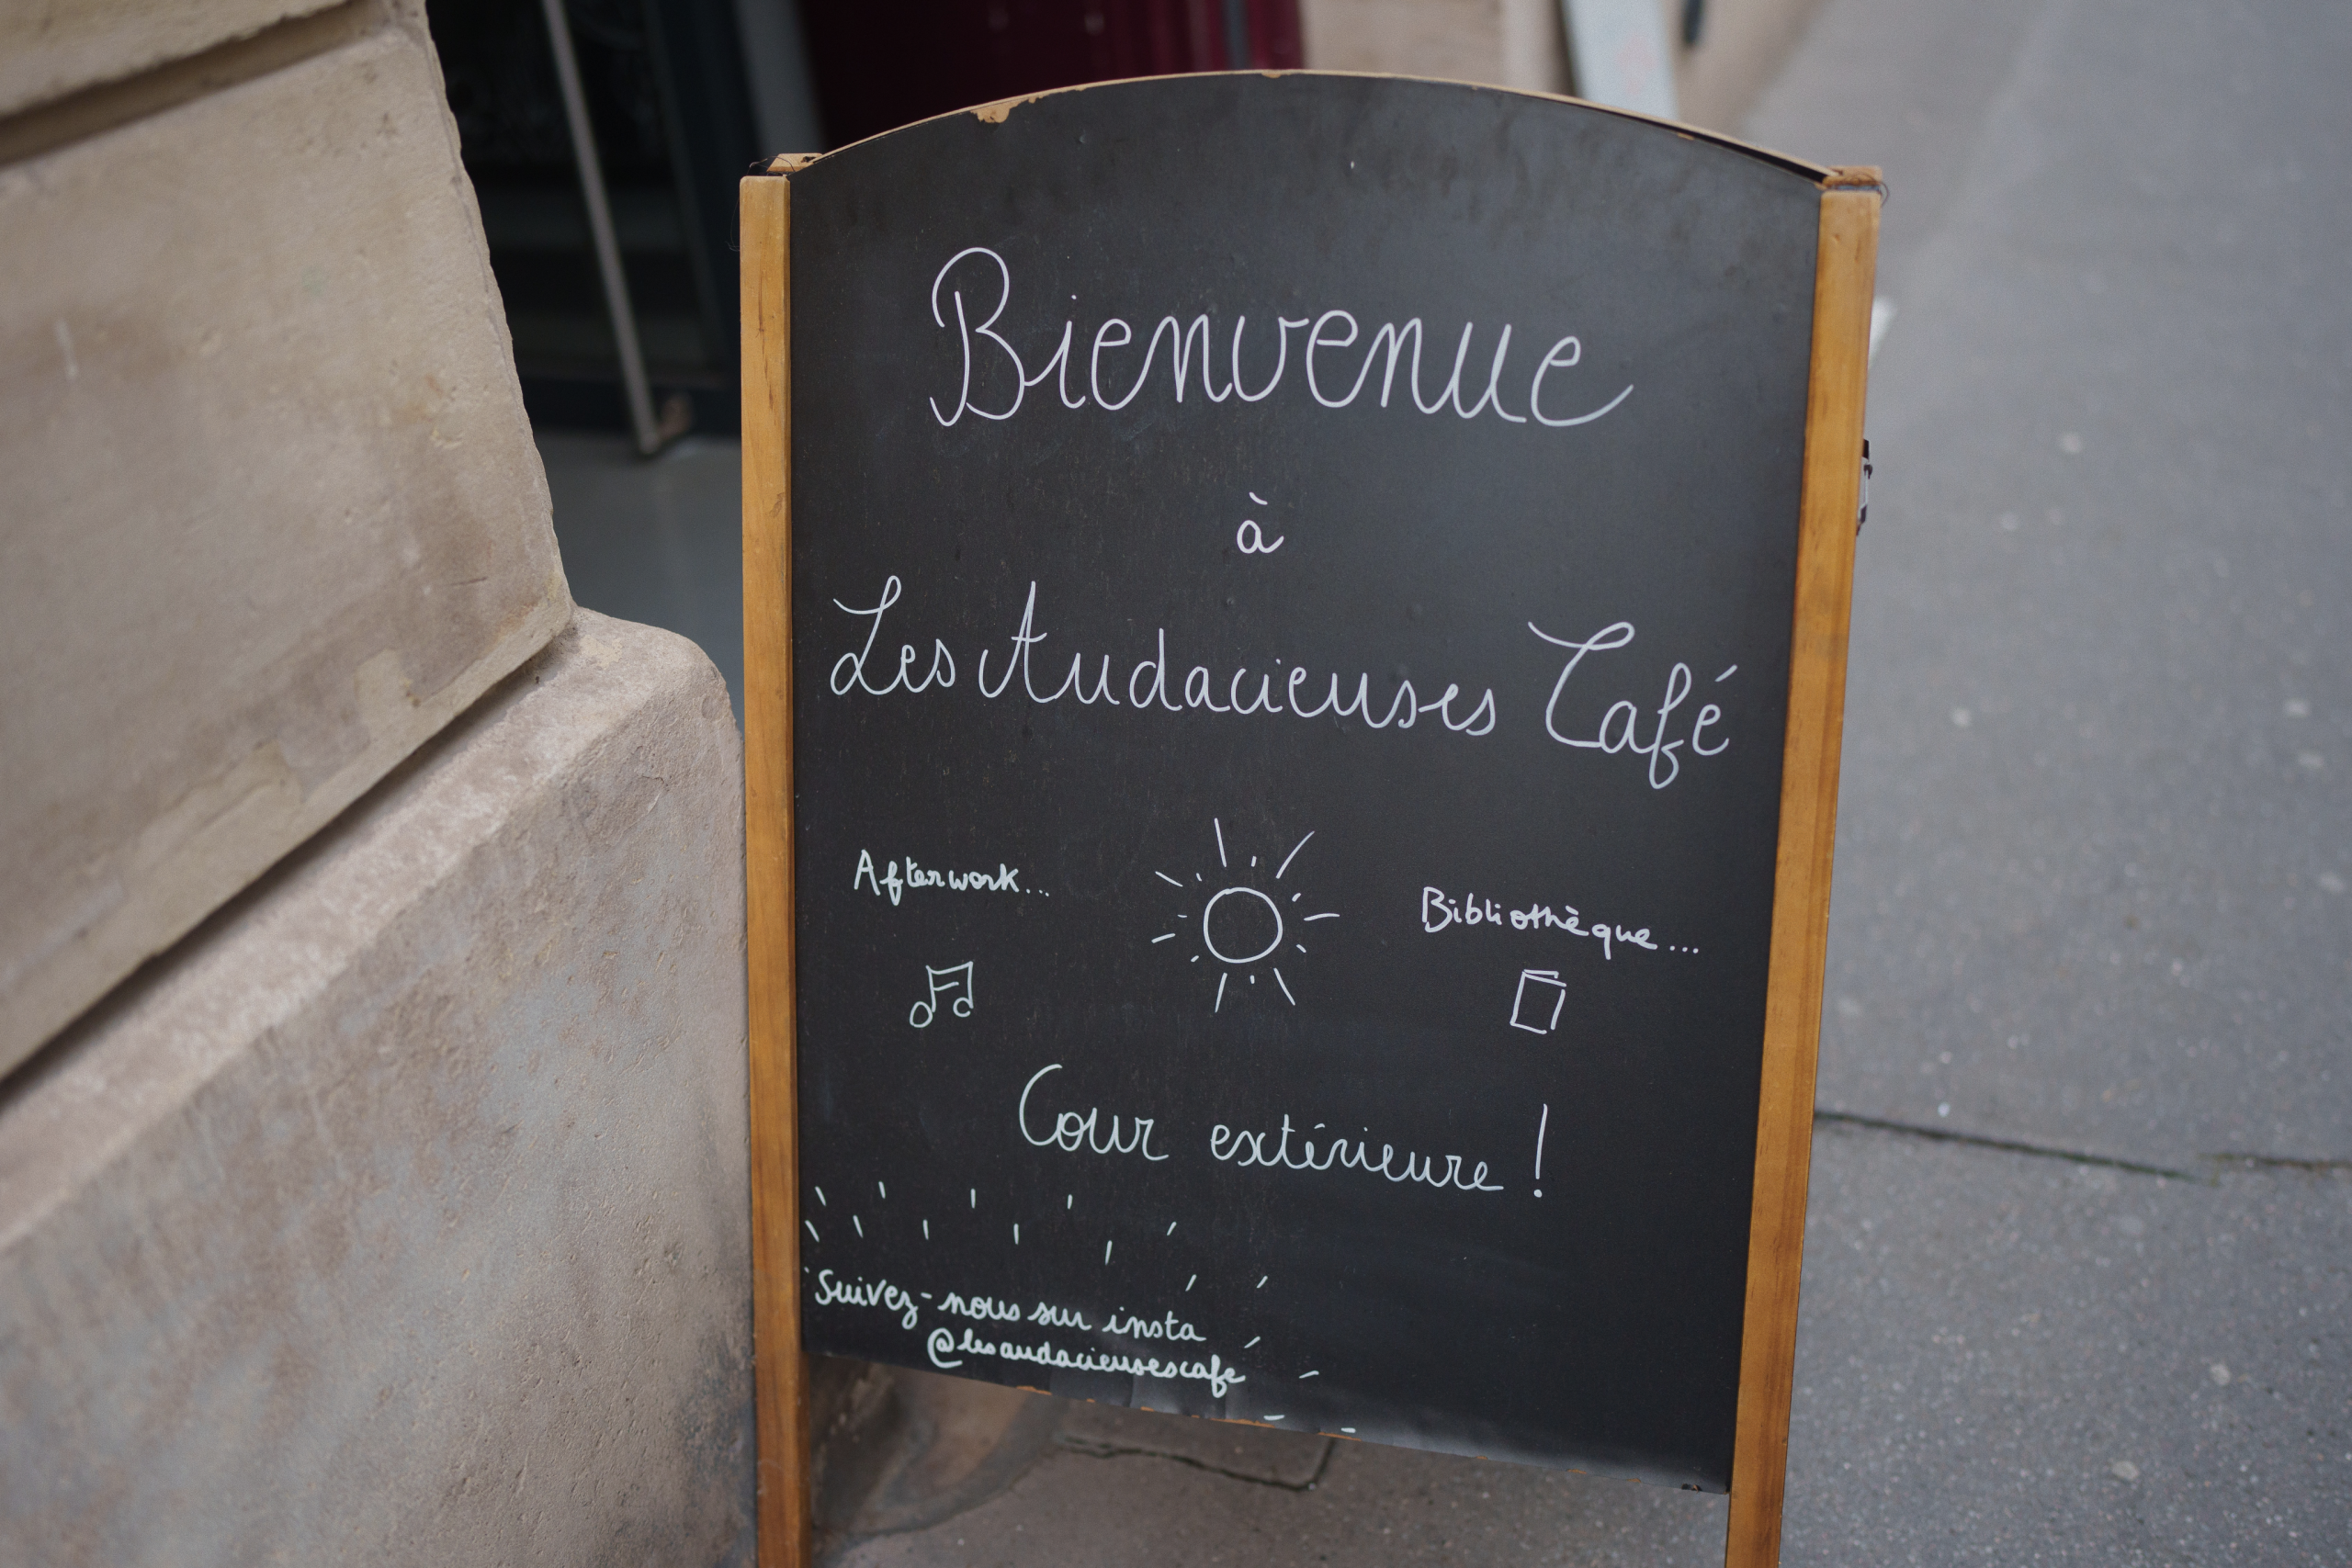 Bienvenue
à
Les Audacieuses Café
Afterwork...
Bibliothèque...
Cour extérieure !
Suivez-nous sur insta
@lesaudacieusescafe